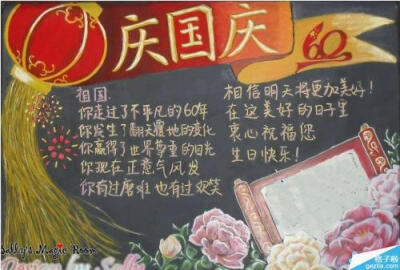 庆国庆
60
祖国
你走过了不平凡的60年
你发生了翻天覆地的变化
你赢得了世界尊重的目光
你现在正意气风发
你有过磨难也有过欢笑
相信明天将更加美好！
在这美好的日子里
衷心祝福您
生日快乐！
Sally's Magic Room
格子啦
gezila.com